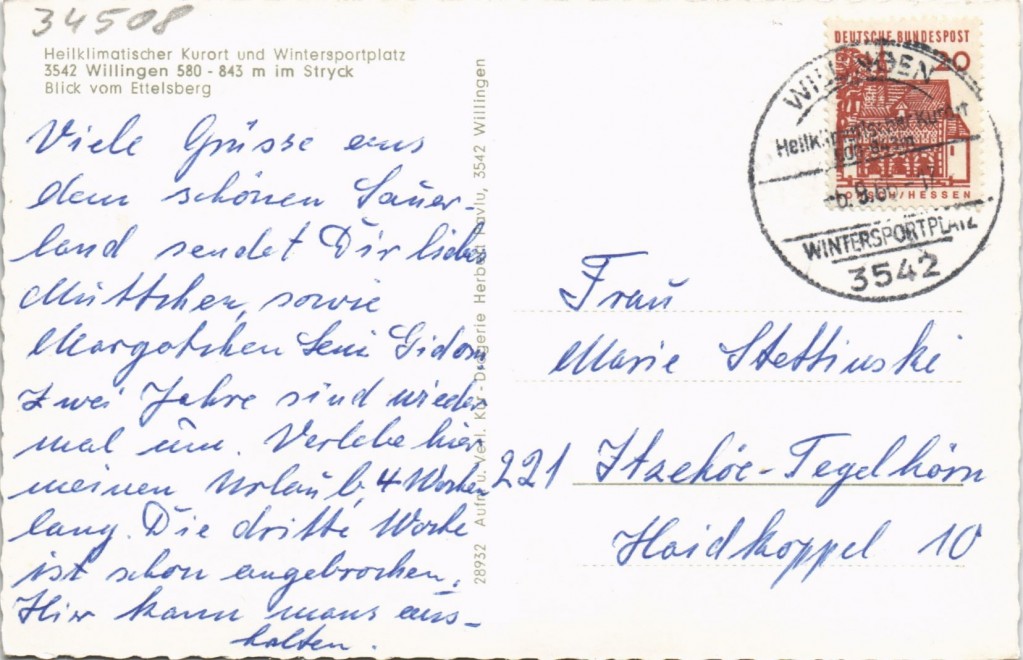 34508
Heilklimatischer Kurort und Wintersportplatz
3542 Willingen 580 - 843 m im Stryck
Blick vom Ettelsberg
Viele Grüsse aus
dem schönen Sauer-
land sendet Dir liebes
Muttchen, sowie
Margotchen
Zwei Jahre sind wieder
mal um. Verlebe hier
meinen Urlaub, 4 Wochen
lang. Die dritte Woche
ist schon angebrochen.
Hier kann mans aus-
halten.
28932 Aufn. u. Verl. Kur-Drogerie Herbert Pavlu, 3542 Willingen
DEUTSCHE BUNDESPOST
20
LORSCH/HESSEN
WILLINGEN
Heilklimatischer Kurort
WINTERSPORTPLATZ
3542
Frau
Marie Stettinski
221 Itzehoe-Tegelhörn
Haidkoppel 10